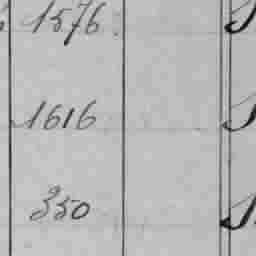 1576
1616
350